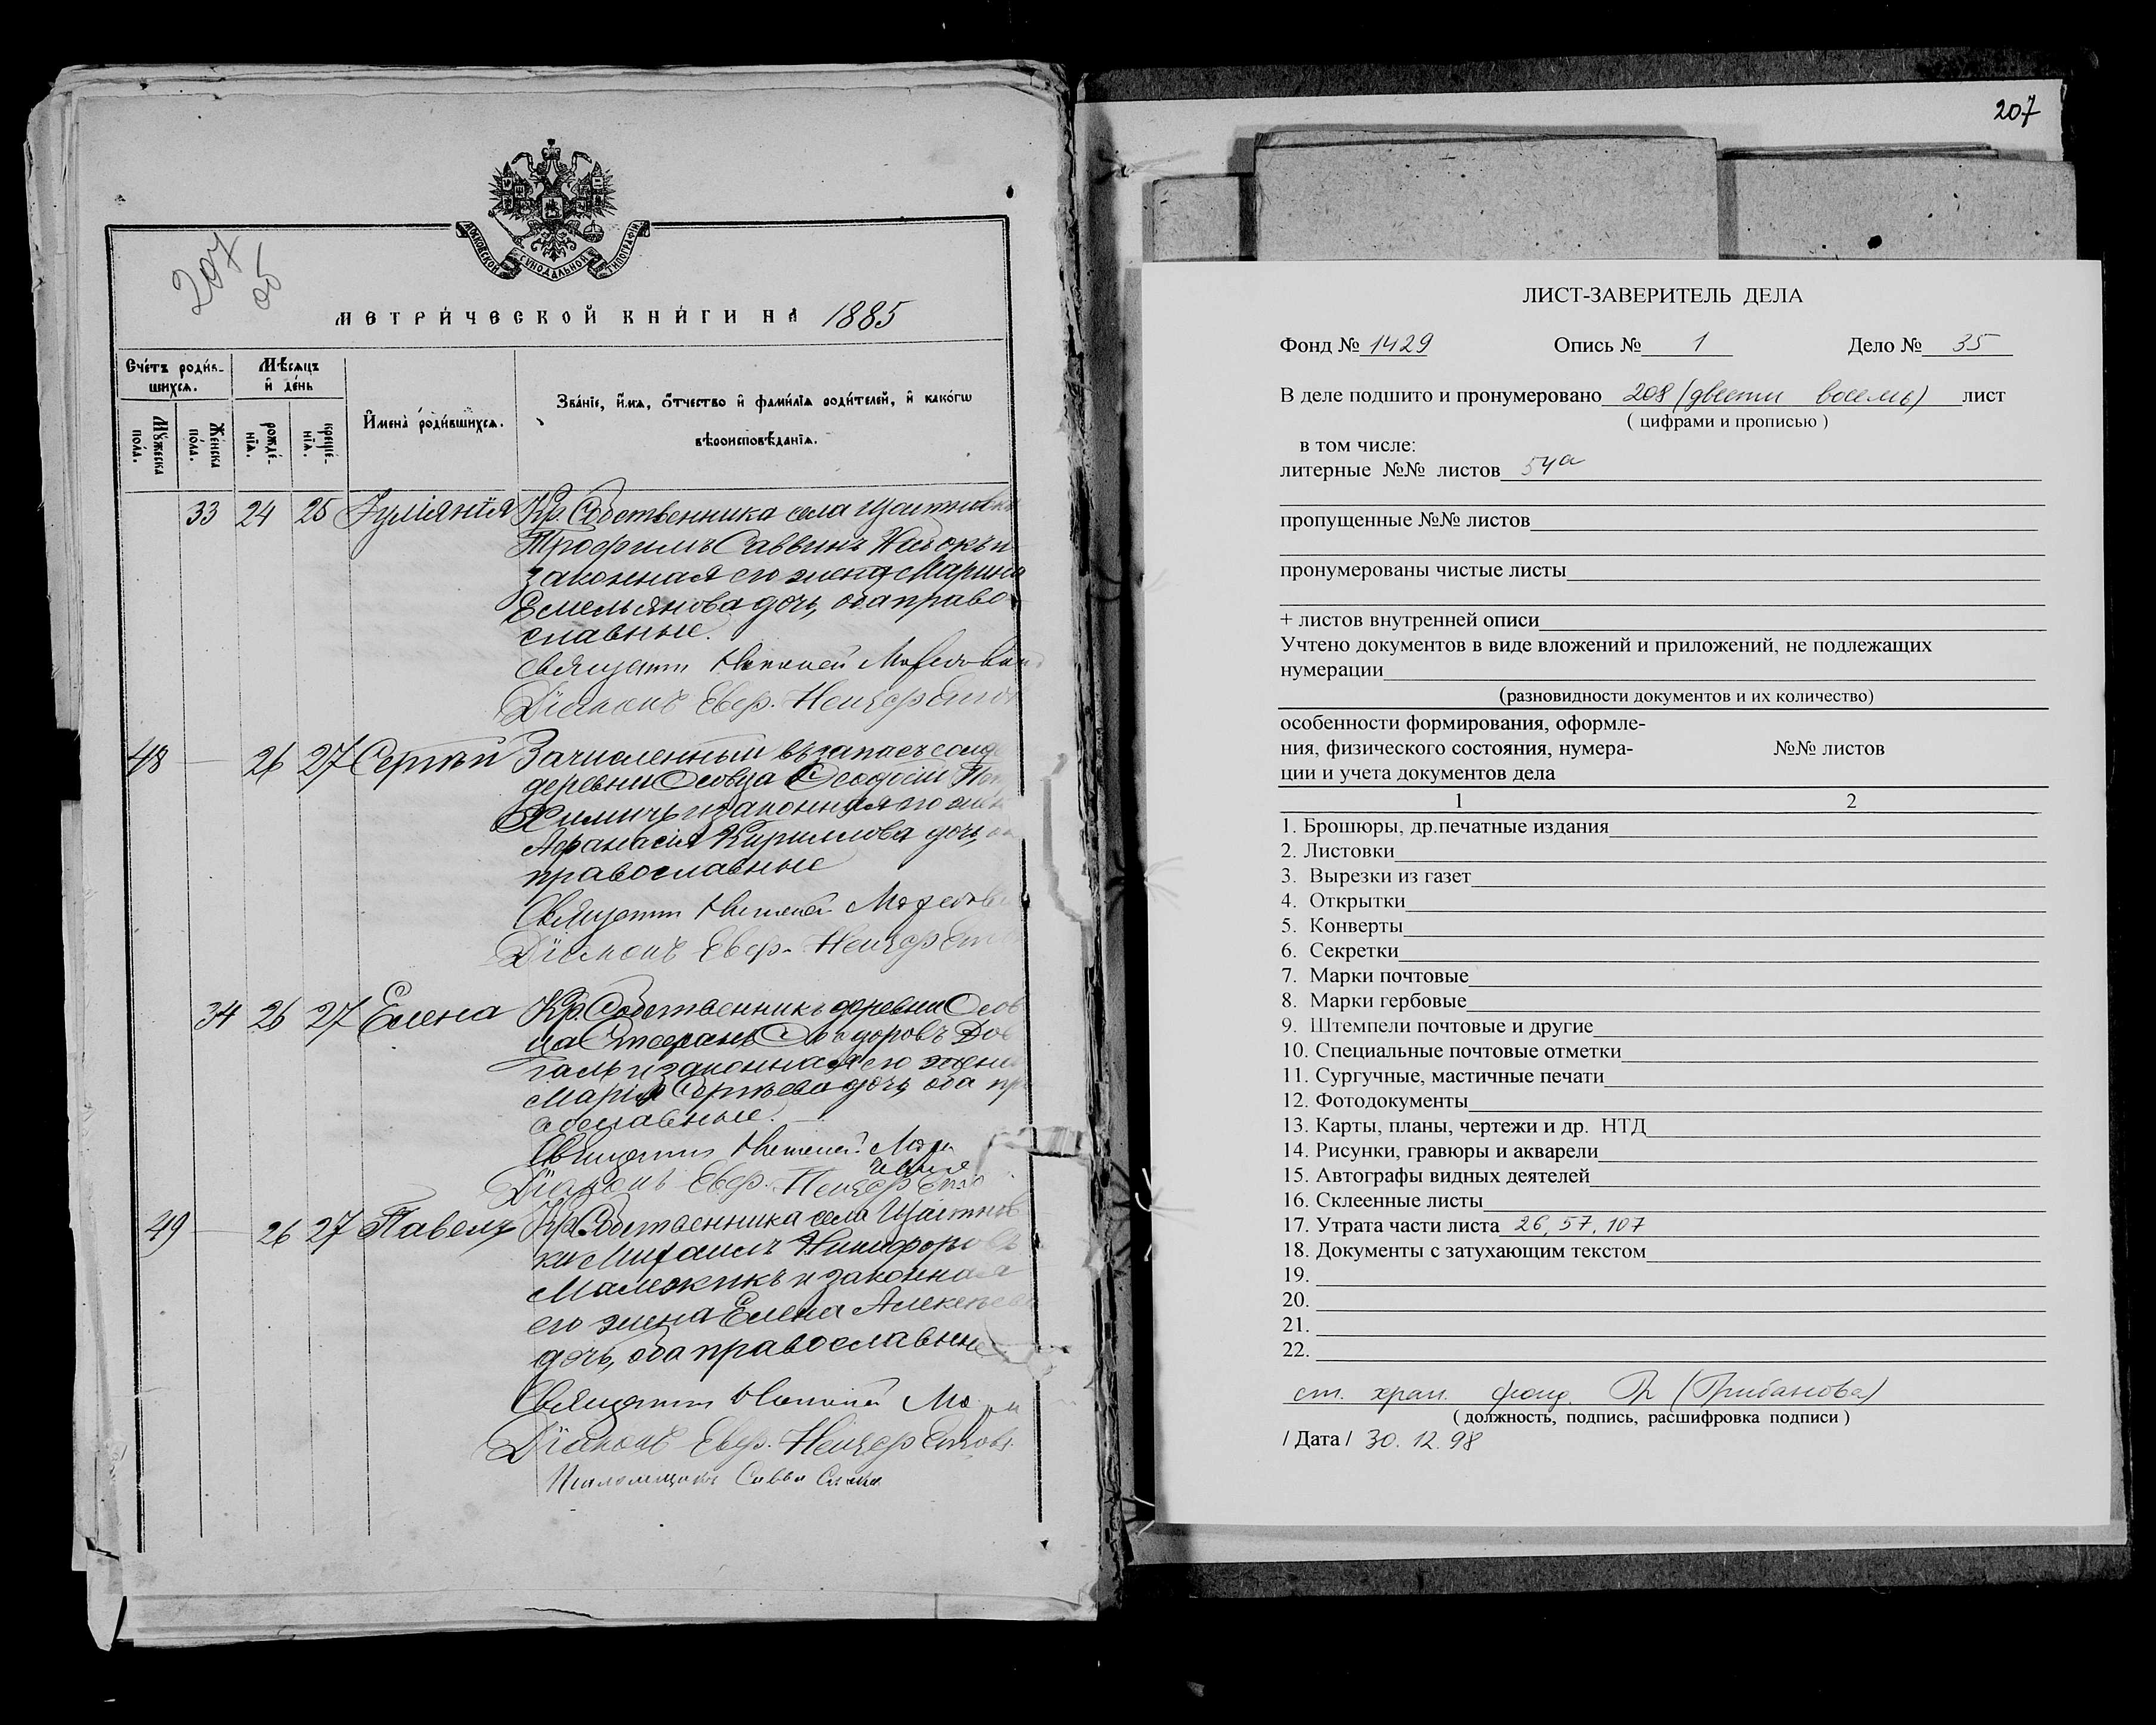 207
об
МОСКОВСКОЙ СѴНОДАЛЬНОЙ ТИПОГРАФІИ
МЕТРИ́ЧЕСКОЙ КНИ́ГИ НА 1885
Сче́тъ роди́вшихся.
Мѣ́сяцъ и де́нь
Му́жеска по́ла.
Же́нска по́ла.
рожде́нїя.
креще́нїя.
И҆мена̀ роди́вшихся.
Зва́нїе, и҆́мя, ѻ҆́тчество и҆ фами́лїя роди́телей, и҆ како́гѡ
вѣроисповѣ́данїя.
33 24 25 Іуліанія Кр. Собственника села
Трофимъ Саввинъ
законная его жена Марина
Емельянова дочь, оба право
славные.
Священ Николай
Діаконъ Евф.
48 26 27 Сергѣй Зачисленный въ запасъ солд
деревни Осовца Ѳеодосій
Химичъ и законная его жен
Афанасія Кириллова дочь,
православные
Священ Николай
Діаконъ Евф.
34 26 27 Елена Кр. Собственникъ деревни Осов
ца Стефанъ Ѳеодоровъ Дов
галь и законная его жена
Марія Сергѣева дочь, оба пр
авославные.
Священ Николай
Діаконъ Евф.
49 26 27 Павелъ Кр. Собственника села
ки Михаилъ Никифоровъ
Малежикъ и законная
его жена Елена Алексѣева
дочь, оба православные
Священ Николай
Діаконъ Евф.
Псаломщикъ Савва
207
ЛИСТ-ЗАВЕРИТЕЛЬ ДЕЛА
Фонд № 1429 Опись № 1 Дело № 35
В деле подшито и пронумеровано 208 (двести восемь) лист
( цифрами и прописью )
в том числе:
литерные №№ листов 54а
пропущенные №№ листов
пронумерованы чистые листы
+ листов внутренней описи
Учтено документов в виде вложений и приложений, не подлежащих
нумерации
(разновидности документов и их количество)
особенности формирования, оформле-
ния, физического состояния, нумера- №№ листов
ции и учета документов дела
1 2
1. Брошюры, др.печатные издания
2. Листовки
3. Вырезки из газет
4. Открытки
5. Конверты
6. Секретки
7. Марки почтовые
8. Марки гербовые
9. Штемпели почтовые и другие
10. Специальные почтовые отметки
11. Сургучные, мастичные печати
12. Фотодокументы
13. Карты, планы, чертежи и др. НТД
14. Рисунки, гравюры и акварели
15. Автографы видных деятелей
16. Склеенные листы
17. Утрата части листа 26, 57, 107
18. Документы с затухающим текстом
19.
20.
21.
22.
ст. хран. фонд. Гр (Грибанова)
( должность, подпись, расшифровка подписи )
/ Дата / 30. 12. 98